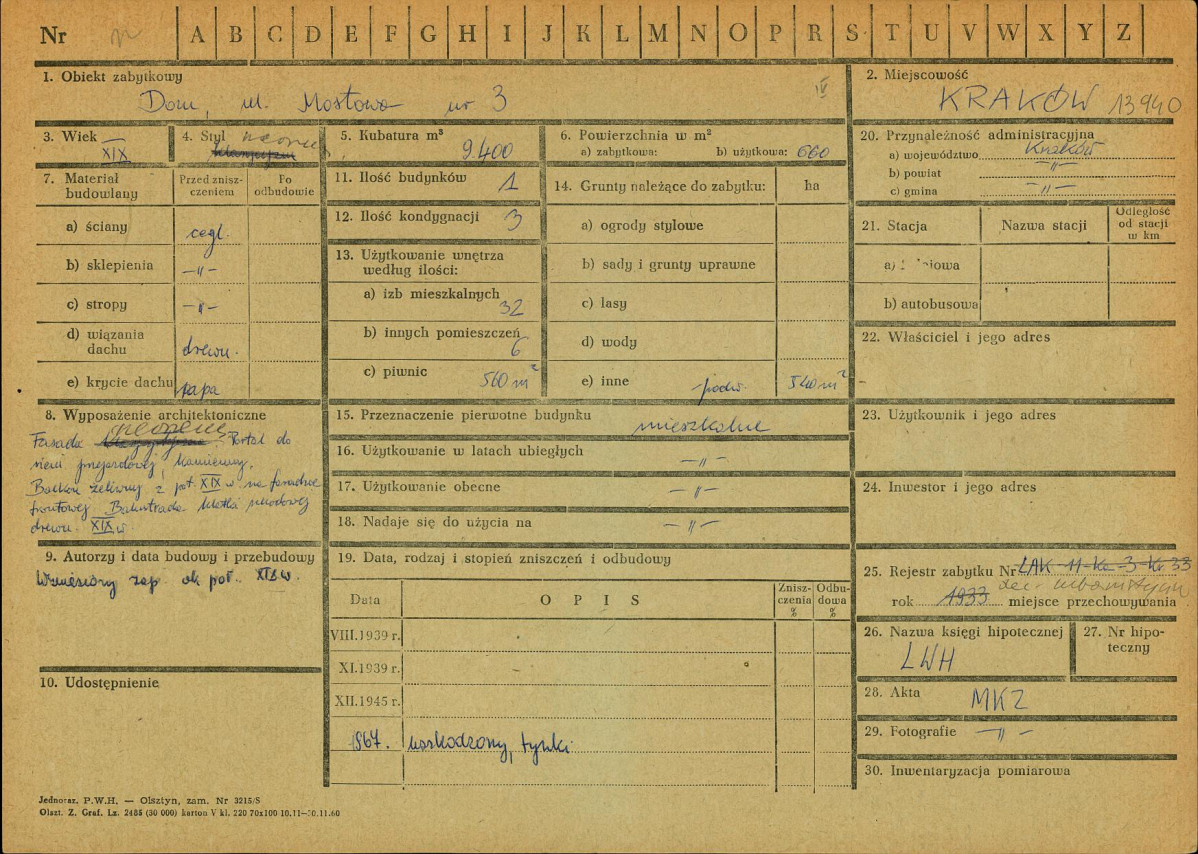 Nr A B C D E F G H I J K L M N O P R S T U V W X Y Z
1. Obiekt zabytkowy
Dom, ul. Mostowa nr 3
IV
2. Miejscowość
KRAKÓW 13940
3. Wiek
XIX
4. Styl
5. Kubatura m³
9.400
6. Powierzchnia w m²
a) zabytkowa: b) użytkowa: 660
20. Przynależność administracyjna
a) województwo Kraków
b) powiat —"—
c) gmina —"—
7. Materiał budowlany
Przed zniszczeniem
Po odbudowie
a) ściany cegl.
b) sklepienia —"—
c) stropy —"—
d) wiązania dachu drewn.
e) krycie dachu papa
11. Ilość budynków 1
12. Ilość kondygnacji 3
13. Użytkowanie wnętrza
według ilości:
a) izb mieszkalnych
32
b) innych pomieszczeń
6
c) piwnic 560 m²
14. Grunty należące do zabytku: ha
a) ogrody stylowe
b) sady i grunty uprawne
c) lasy
d) wody
e) inne podw. 540 m²
21. Stacja Nazwa stacji
Odległość
od stacji
w km
b) autobusowa
22. Właściciel i jego adres
8. Wyposażenie architektoniczne
Fasada Portal do
sieni przejazdowej, kamienny.
Balkon żeliwny z poł. XIX w na fasadzie
frontowej. Balustrada klatki schodowej
drewn. XIX w.
15. Przeznaczenie pierwotne budynku
mieszkalne
16. Użytkowanie w latach ubiegłych
—"—
17. Użytkowanie obecne —"—
18. Nadaje się do użycia na —"—
23. Użytkownik i jego adres
24. Inwestor i jego adres
9. Autorzy i data budowy i przebudowy
Wzniesiony zap. ok poł. XIX w.
19. Data, rodzaj i stopień zniszczeń i odbudowy
Data
O P I S
Zniszczenia
%
Odbudowa
%
VIII.1939 r.
XI.1939 r.
XII.1945 r.
1967. uszkodzony, tynki
25. Rejestr zabytku Nr
rok 1933 miejsce przechowywania
26. Nazwa księgi hipotecznej
LWH
27. Nr hipoteczny
10. Udostępnienie
28. Akta MKZ
29. Fotografie —"—
30. Inwentaryzacja pomiarowa
Jednoraz. P.W.H. — Olsztyn, zam. Nr 3215/S
Olszt. Z. Graf. Lz. 2485 (30 000) karton V kl. 220 70x100 10.11—30.11.60